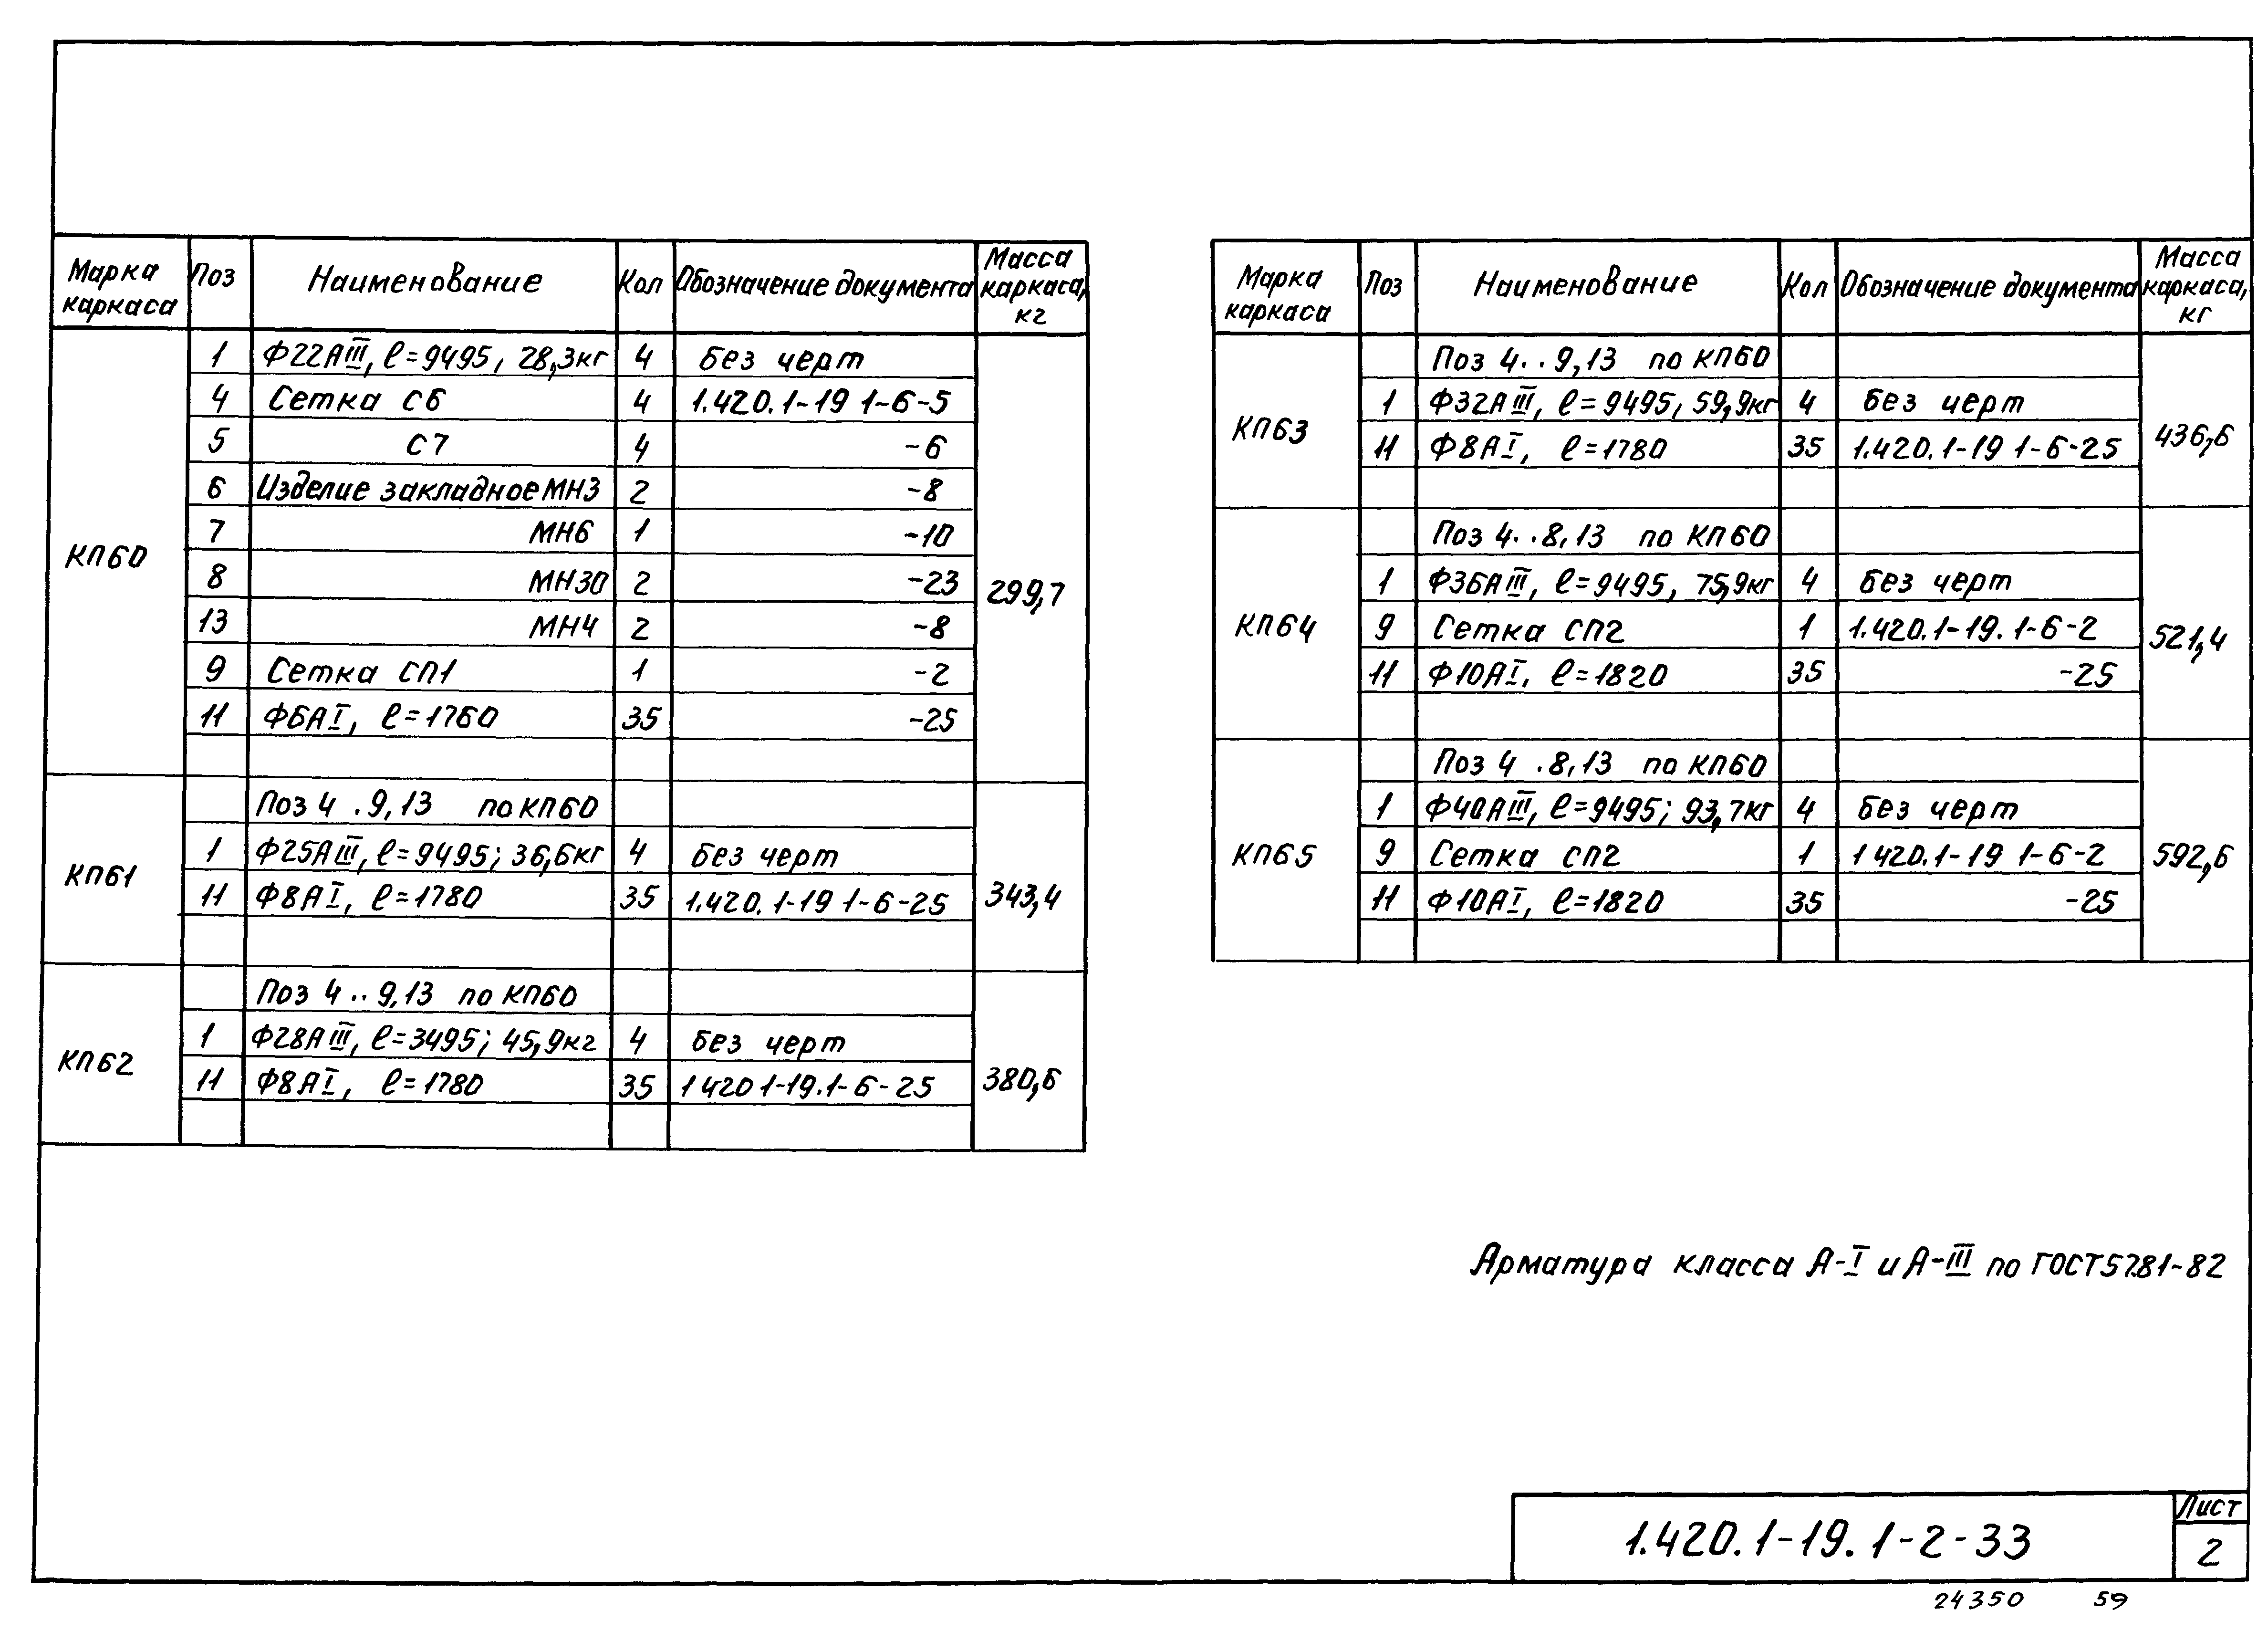 Марка каркаса Поз Наименование Кол Обозначение документа Масса каркаса, кг
КП60 299,7
1 Ф22АIII, ℓ=9495, 28,3кг 4 без черт
4 Сетка С6 4 1.420.1-19 1-6-5
5 С7 4 -6
6 Изделие закладное МН3 2 -8
7 МН6 1 -10
8 МН30 2 -23
13 МН4 2 -8
9 Сетка СП1 1 -2
11 Ф6АI, ℓ=1760 35 -25
КП61 343,4
Поз 4 . 9,13 по КП60
1 Ф25АIII, ℓ=9495; 36,6кг 4 без черт
11 Ф8АI, ℓ=1780 35 1.420.1-19 1-6-25
КП62 380,6
Поз 4 .. 9,13 по КП60
1 Ф28АIII, ℓ=3495; 45,9кг 4 без черт
11 Ф8АI, ℓ=1780 35 1 420 1-19.1-6-25
Марка каркаса Поз Наименование Кол Обозначение документа Масса каркаса, кг
КП63 436,6
Поз 4..9,13 по КП60
1 Ф32АIII, ℓ=9495, 59,9кг 4 без черт
11 Ф8АI, ℓ=1780 35 1.420.1-19 1-6-25
КП64 521,4
Поз 4..8,13 по КП60
1 Ф36АIII, ℓ=9495, 75,9кг 4 без черт
9 Сетка СП2 1 1.420.1-19.1-6-2
11 Ф10АI, ℓ=1820 35 -25
КП65 592,6
Поз 4 .8,13 по КП60
1 Ф40АIII, ℓ=9495; 93,7кг 4 без черт
9 Сетка СП2 1 1 420.1-19 1-6-2
11 Ф10АI, ℓ=1820 35 -25
Арматура класса А-I и А-III по ГОСТ5781-82
1.420.1-19.1-2-33
Лист
2
24350 59